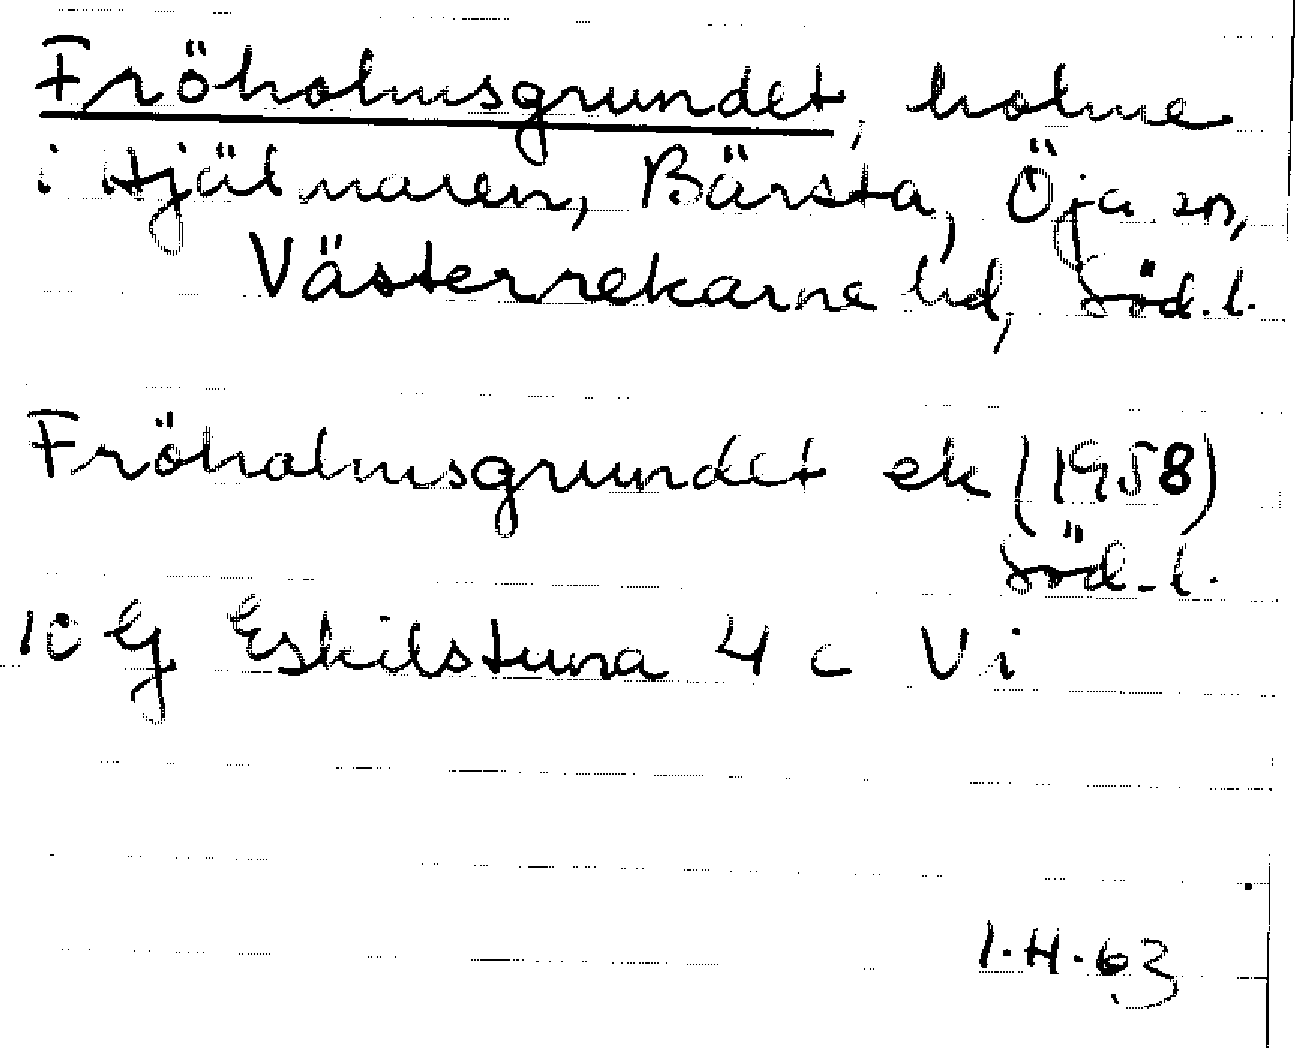 Fröholmsgrundet, holme
i Hjälmaren, Bärsta, Öja sn,
Västerrekarne hd, Söd. l.
Fröholmsgrundet ek (1958)
Söd. l.
10 G Eskilstuna 4 c Vi
I.H.63